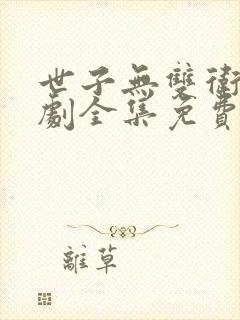 世子無雙衛
劇全集免費
離草